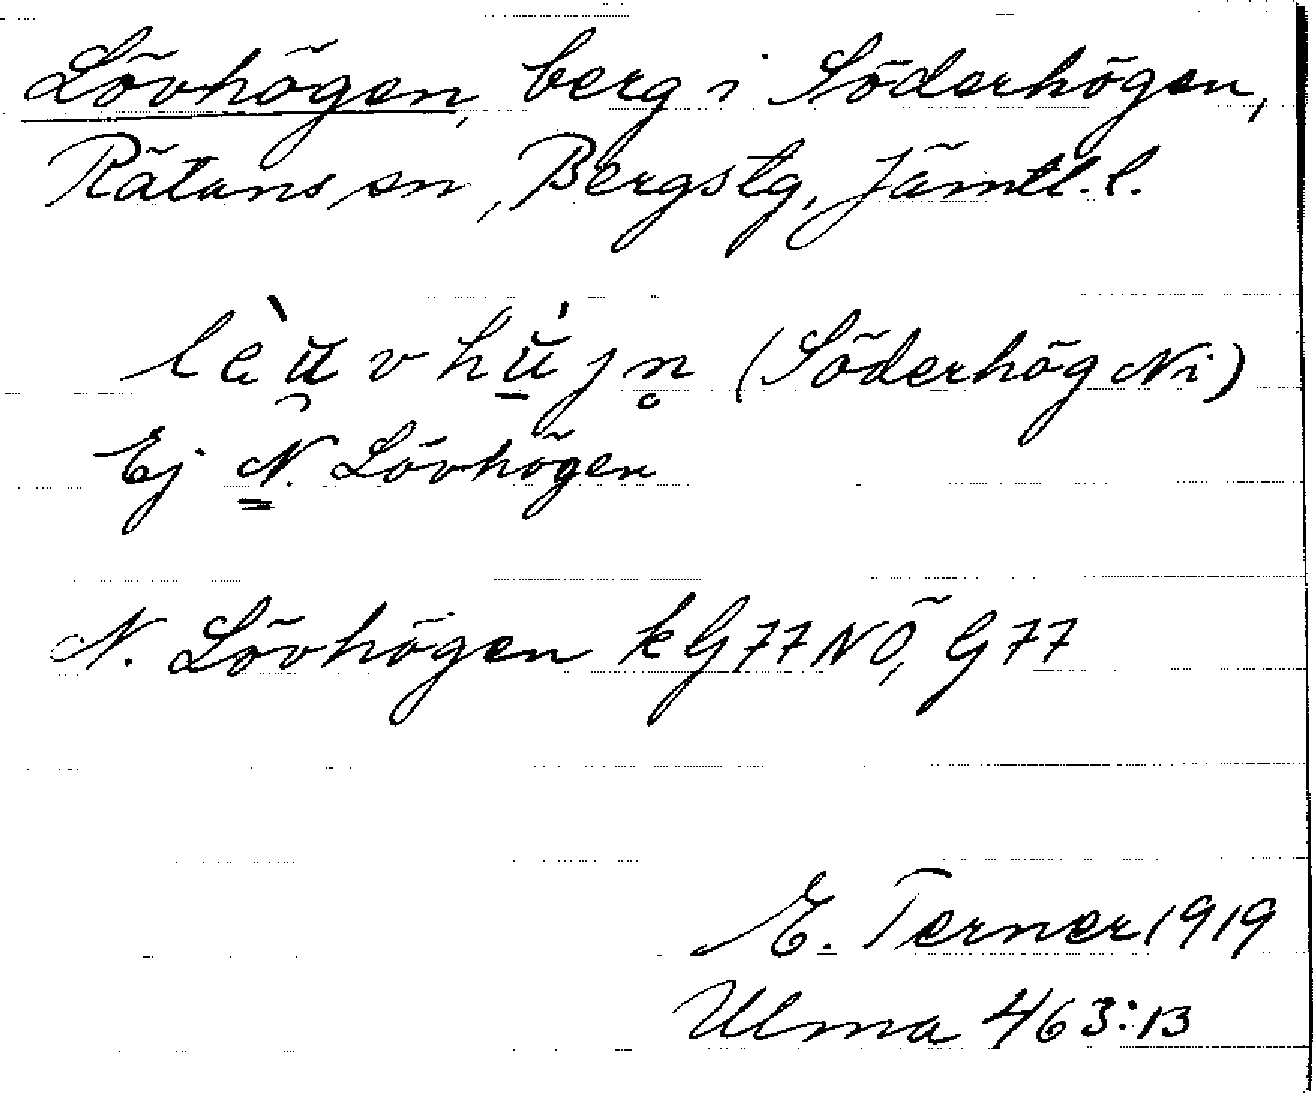 Lövhögen, berg i Söderhögen,
Rätans sn, Bergs tg, Jämtl. l.
lèu̯vhú̱jn̥ (Söderhög Ni)
Ej N. Lövhögen
N. Lövhögen k G77NÖ, G77
E. Terner 1919
Ulma 463:13